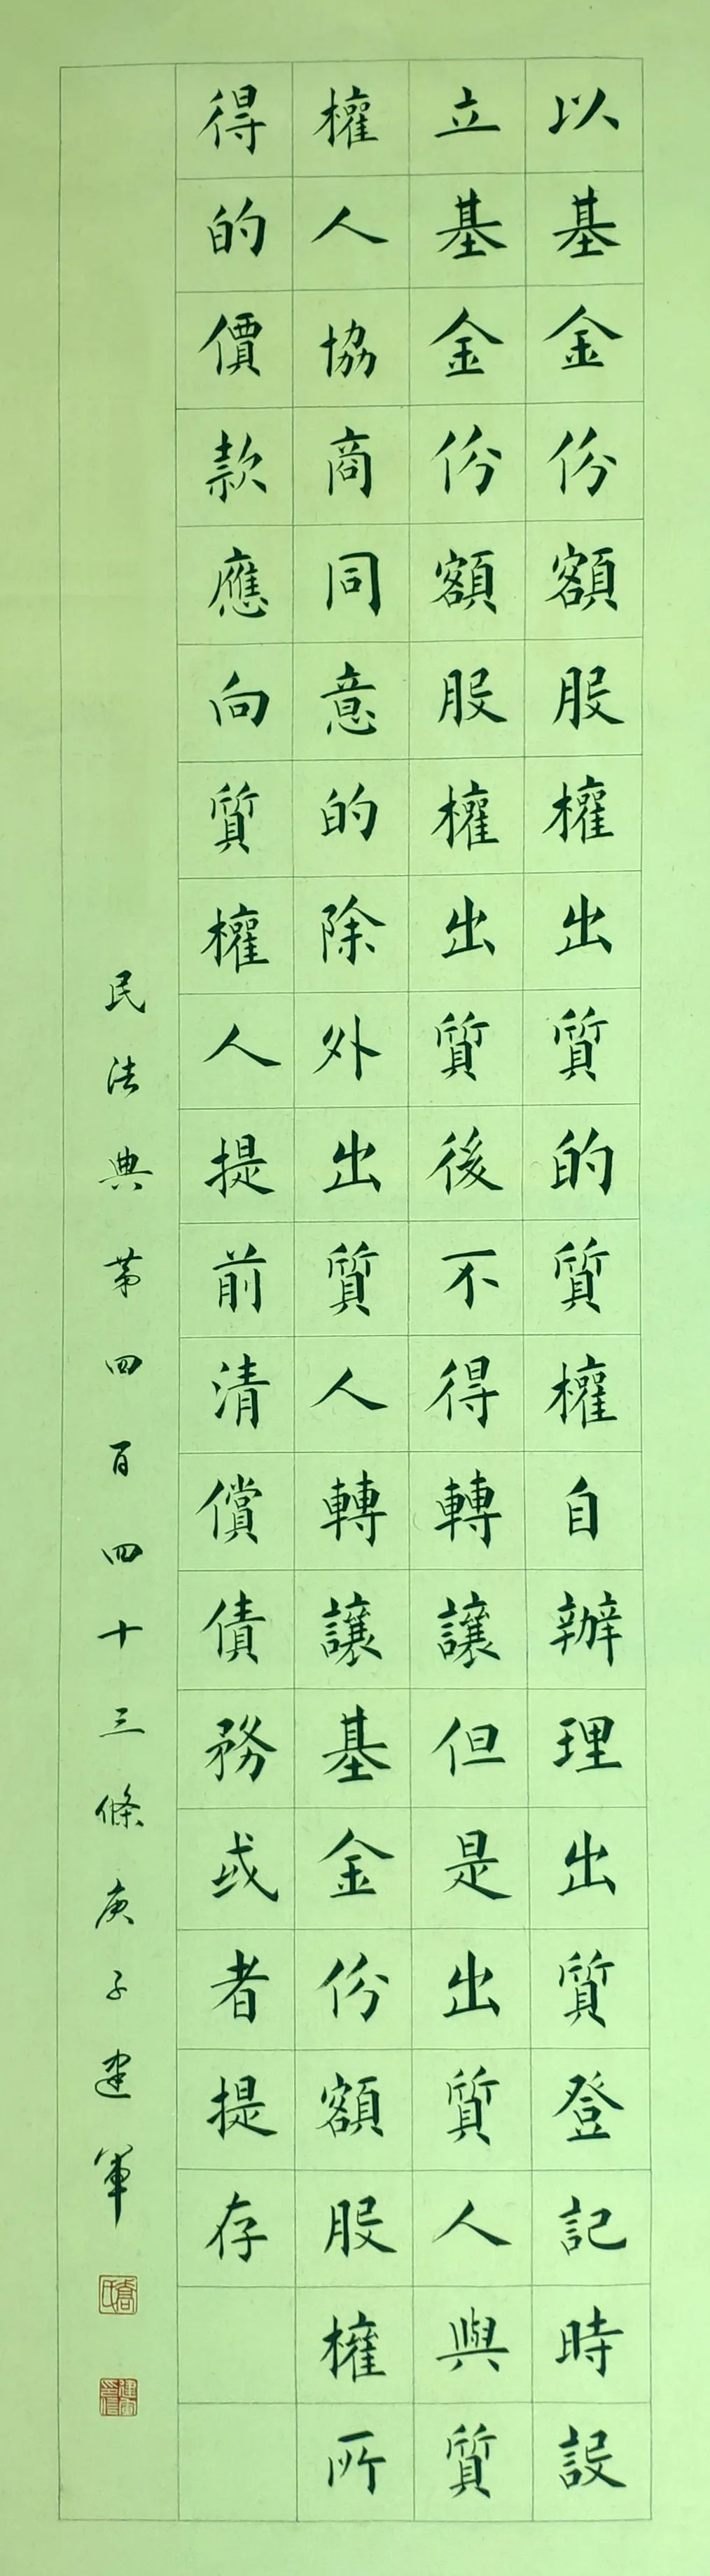 以基金份額股權出質的質權自辦理出質登記時設
立基金份額股權出質後不得轉讓但是出質人與質
權人協商同意的除外出質人轉讓基金份額股權所
得的價款應向質權人提前清償債務或者提存
民法典第四百四十三條庚子建軍